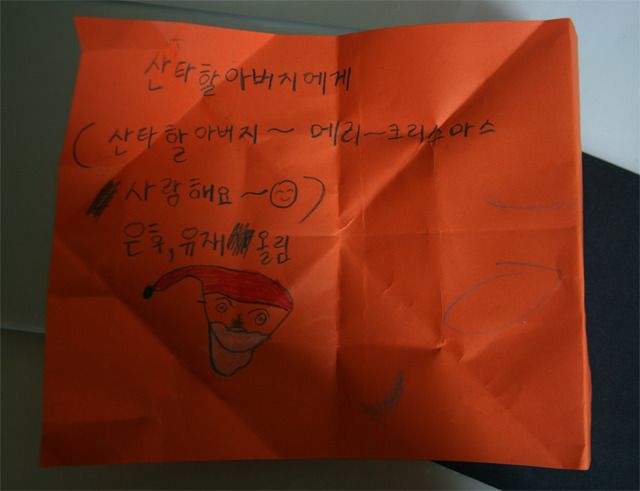 산타할아버지에게
(산타할아버지~ 메리~크리수마스
사랑해요~☺)
은후, 유재 올림